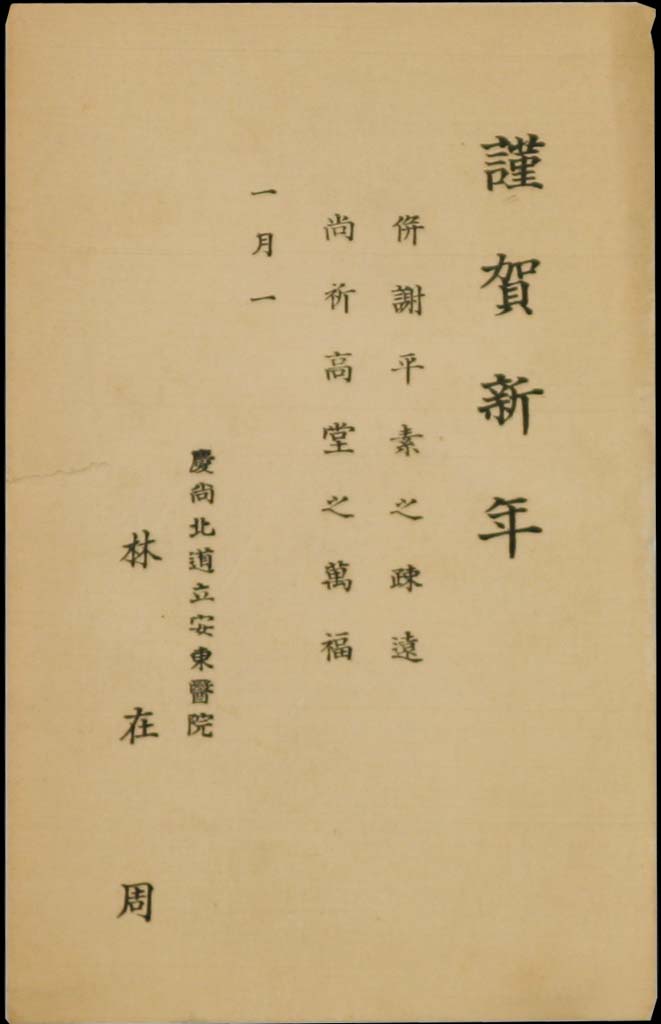 謹賀新年
倂謝平素之疎遠
尚祈高堂之萬福
一月一
慶尙北道立安東醫院
林在周